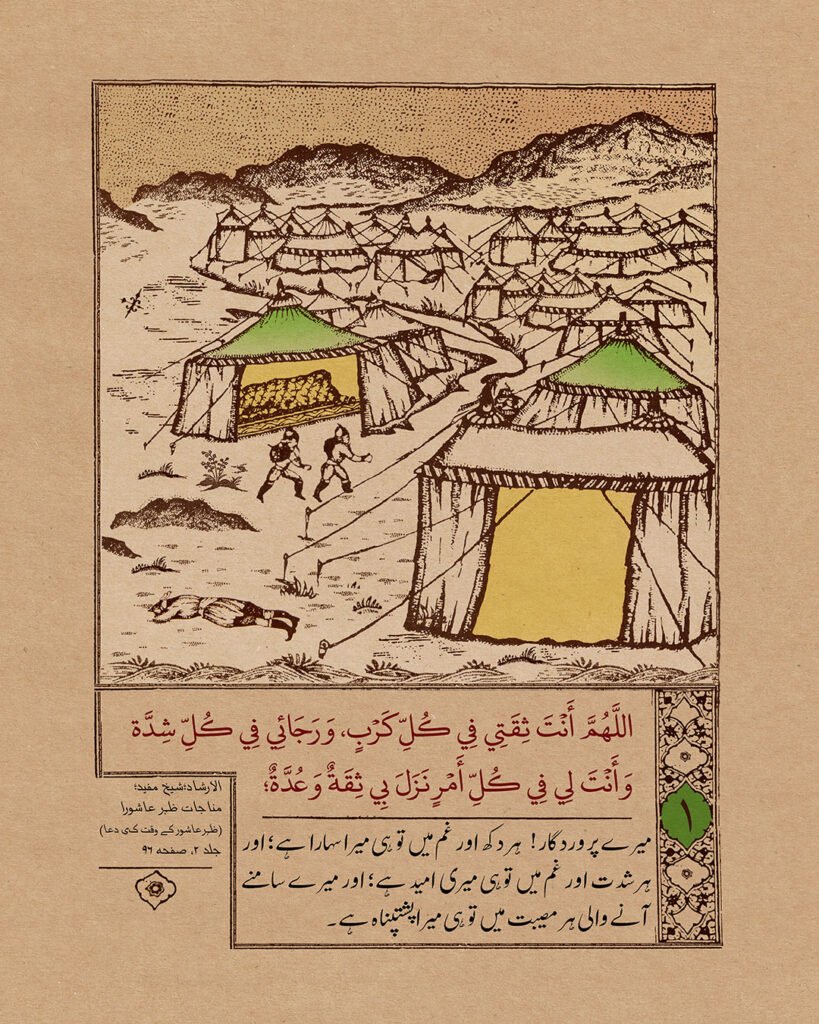 اللَّهُمَّ أَنْتَ ثِقَتِي فِي كُلِّ كَرْبٍ، وَرَجَائِي فِي كُلِّ شِدَّة
وَأَنْتَ لِي فِي كُلِّ أَمْرٍ نَزَلَ بِي ثِقَةٌ وَعُدَّةٌ؛
۱
میرے پروردگار! ہر دکھ اور غم میں تو ہی میرا سہارا ہے؛ اور
ہر شدت اور غم میں تو ہی میری امید ہے؛ اور میرے سامنے
آنے والی ہر مصیبت میں تو ہی میرا پشتپناہ ہے۔
الارشاد؛شیخ مفید؛
مناجات ظہر عاشورا
(ظہر عاشور کے وقت کی دعا)
جلد ۲، صفحہ ۹۶